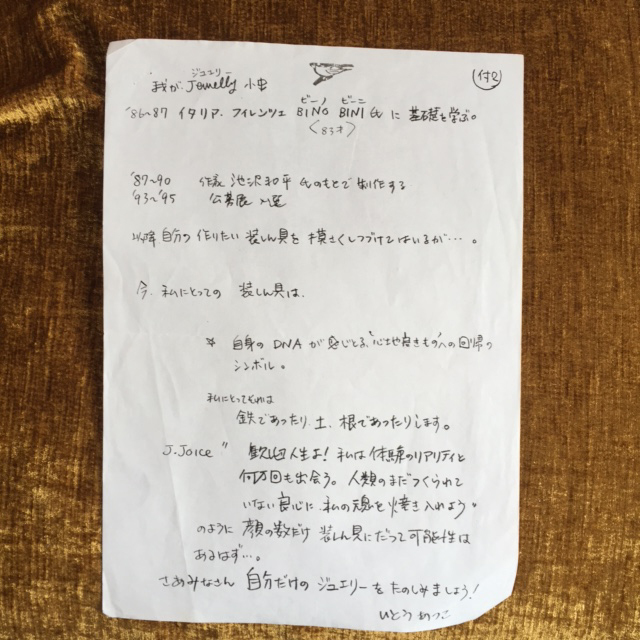 付2
ジュエリー
我が Jewelly 小史
ビーノ ビーニ
'86~87 イタリア・フィレンツェ BINO BINI 氏 に 基礎を学ぶ。
<83才>
'87~90 作家 池沢和平 氏のもとで制作する
'93~'95 公募展 入選
以降 自分の作りたい 装しん具を 模さくしつづけてはいるが…。
今、私にとっての 装しん具は、
* 自身の DNA が 感じとる、心地良きもの への回帰の
シンボル。
私にとってそれは
鉄であったり、土、根であったりします。
J.Joice " 歓迎人生よ! 私は体験のリアリティと
何万回も出会う。人類のまだつくられて
いない良心に、私の魂を焼き入れよう"
のように 顔の数だけ 装しん具にだって可能性は
あるはず…。
さあみなさん 自分だけの ジュエリーを たのしみましょう!